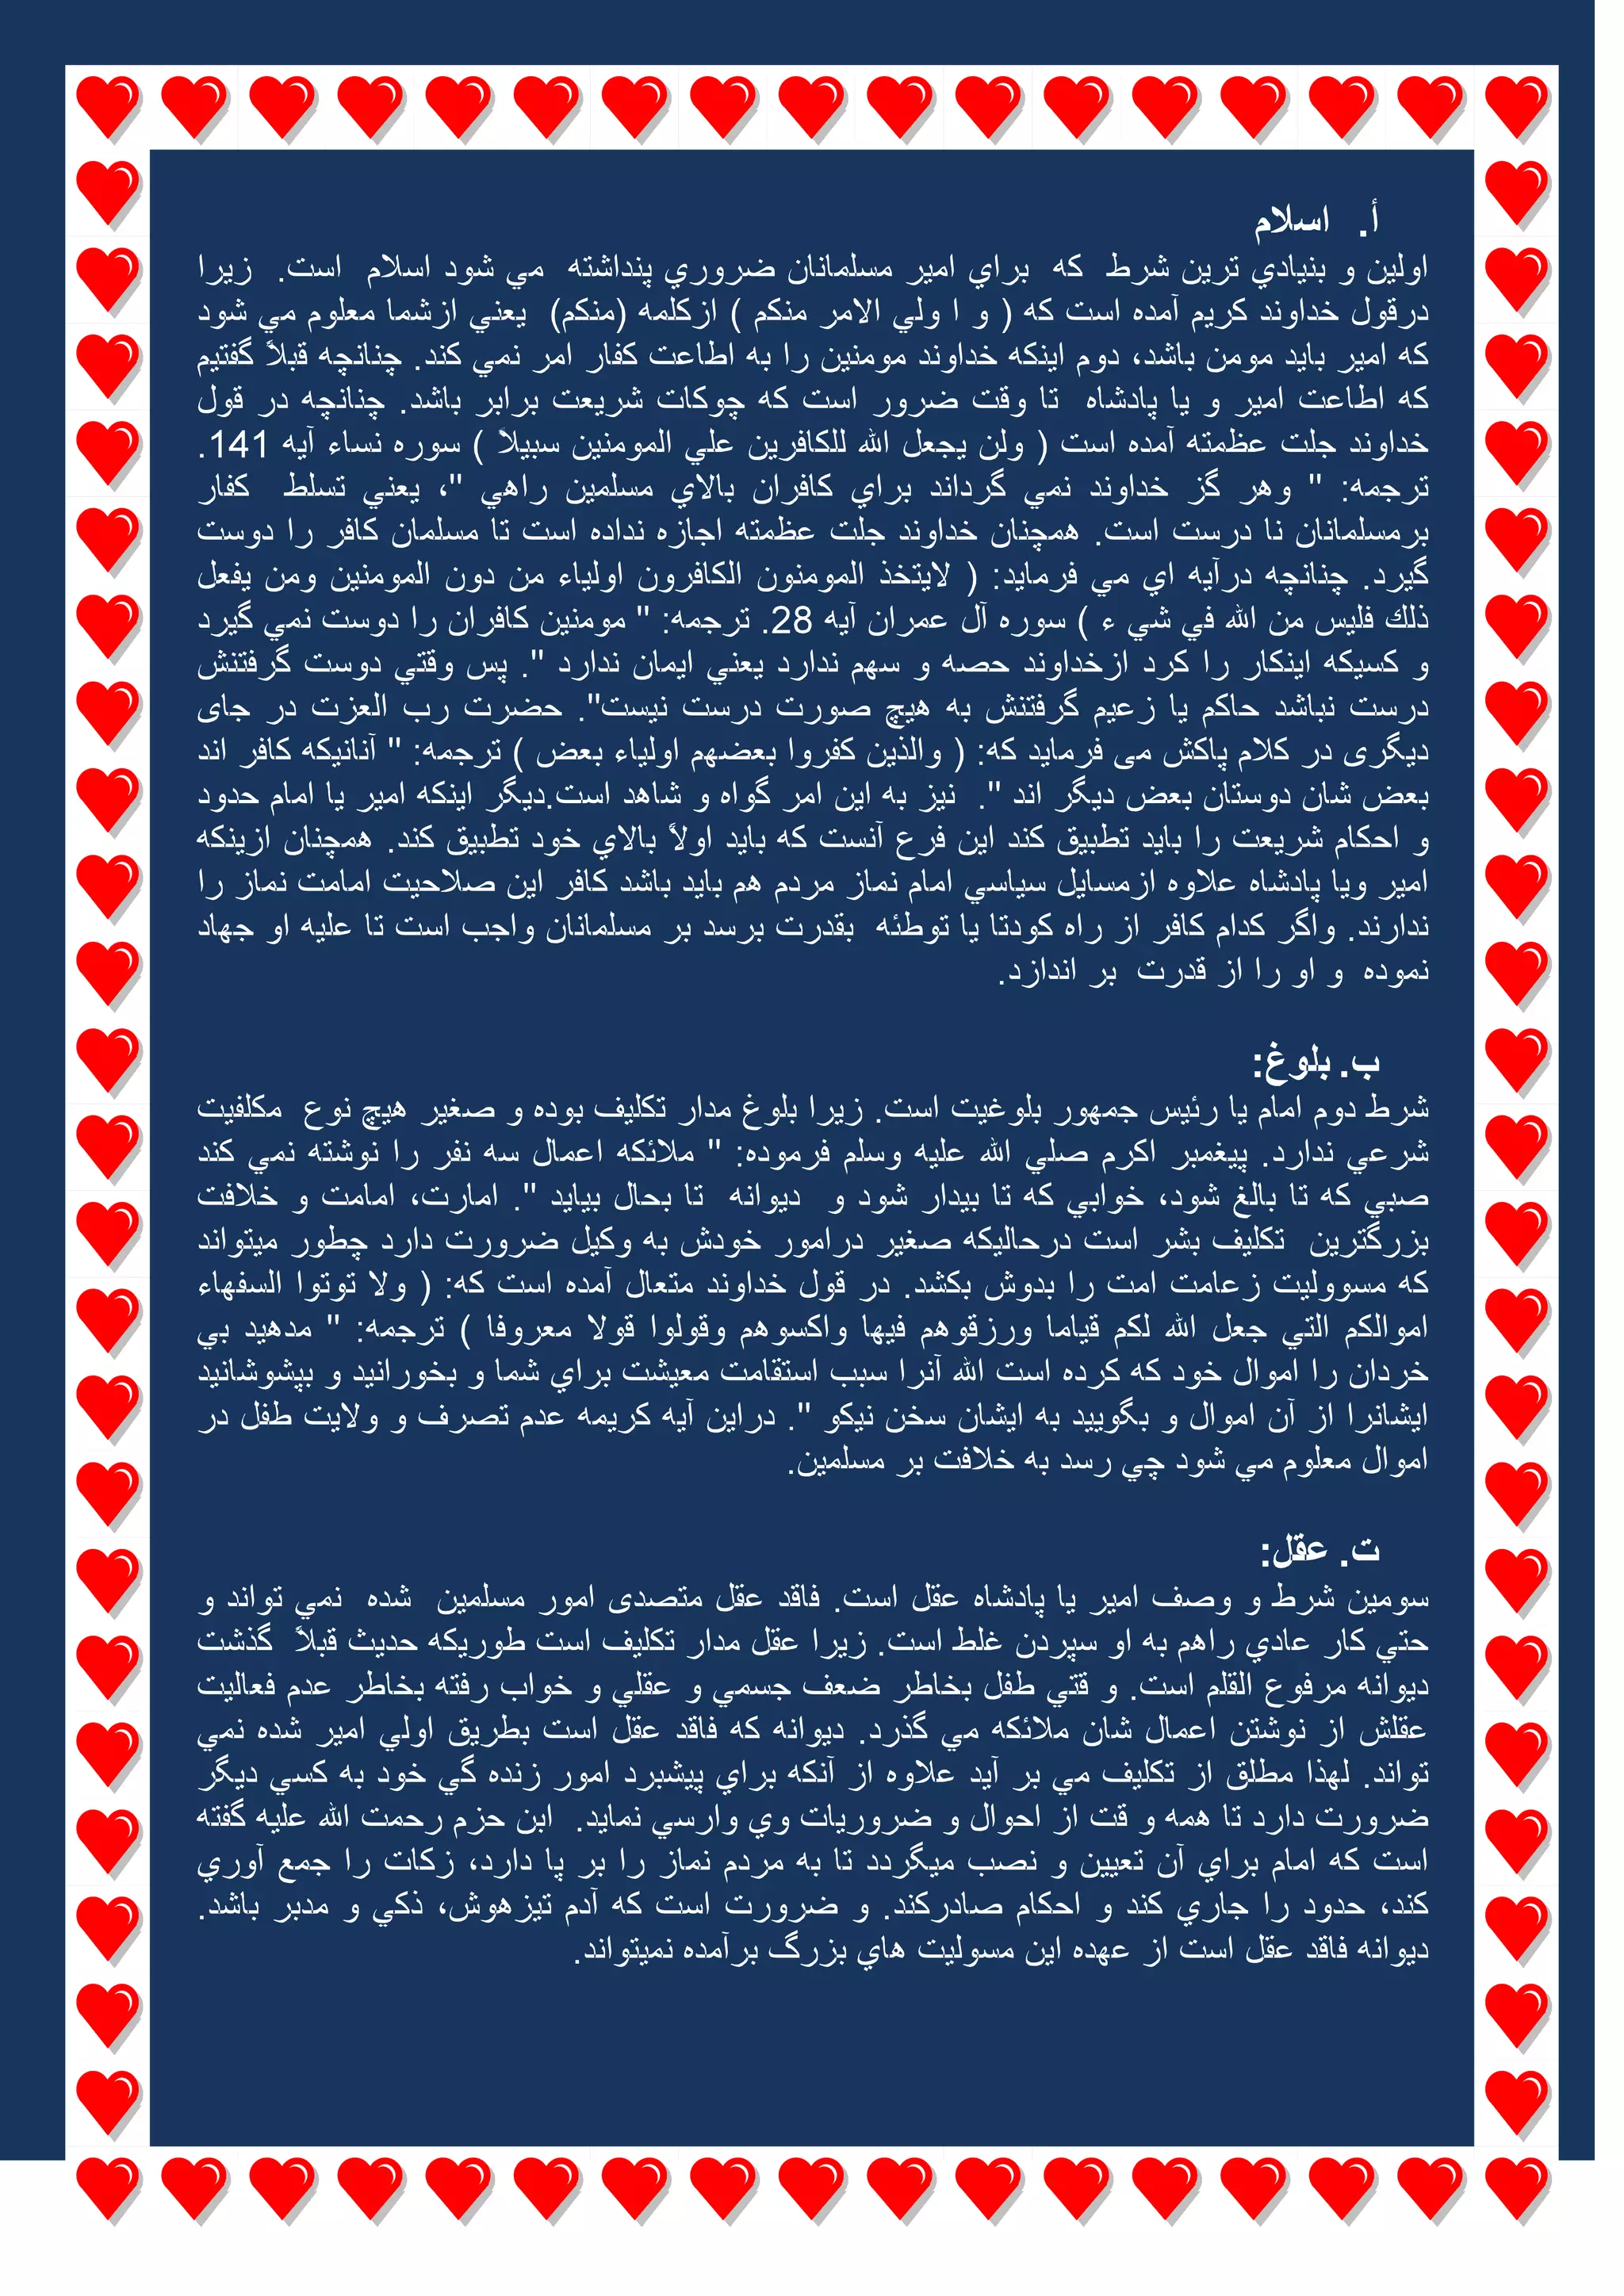 أ. اسلام
اولين و بنيادي ترين شرط كه براي امير مسلمانان ضروري پنداشته مي شود اسلام است. زيرا
درقول خداوند كريم آمده است كه ( و ا ولي الامر منكم ) ازكلمه (منكم) يعني ازشما معلوم مي شود
كه امير بايد مومن باشد، دوم اينكه خداوند مومنين را به اطاعت كفار امر نمي كند. چنانچه قبلاً گفتيم
كه اطاعت امير و يا پادشاه تا وقت ضرور است كه چوكات شريعت برابر باشد. چنانچه در قول
خداوند جلت عظمته آمده است ( ولن يجعل الله للكافرين علي المومنين سبيلاً ) سوره نساء آيه 141.
ترجمه: " وهر گز خداوند نمي گرداند براي كافران بالاي مسلمين راهي "، يعني تسلط كفار
برمسلمانان نا درست است. همچنان خداوند جلت عظمته اجازه نداده است تا مسلمان كافر را دوست
گيرد. چنانچه درآيه اي مي فرمايد: ( لايتخذ المومنون الكافرون اولياء من دون المومنين ومن يفعل
ذلك فليس من الله في شي ء ) سوره آل عمران آيه 28. ترجمه: " مومنين كافران را دوست نمي گيرد
و كسيكه اينكار را كرد ازخداوند حصه و سهم ندارد يعني ايمان ندارد ". پس وقتي دوست گرفتنش
درست نباشد حاكم يا زعيم گرفتنش به هيچ صورت درست نيست". حضرت رب العزت در جای
ديگری در كلام پاكش می فرمايد كه: ( والذين كفروا بعضهم اولياء بعض ) ترجمه: " آنانيكه كافر اند
بعض شان دوستان بعض ديگر اند ". نيز به اين امر گواه و شاهد است.ديگر اينكه امير يا امام حدود
و احكام شريعت را بايد تطبيق كند اين فرع آنست كه بايد اولاً بالاي خود تطبيق كند. همچنان ازينكه
امير ويا پادشاه علاوه ازمسايل سياسي امام نماز مردم هم بايد باشد كافر اين صلاحيت امامت نماز را
ندارند. واگر كدام كافر از راه كودتا يا توطئه بقدرت برسد بر مسلمانان واجب است تا عليه او جهاد
نموده و او را از قدرت بر اندازد.
ب. بلوغ:
شرط دوم امام يا رئيس جمهور بلوغيت است. زيرا بلوغ مدار تكليف بوده و صغير هيچ نوع مكلفيت
شرعي ندارد. پيغمبر اكرم صلي الله عليه وسلم فرموده: " ملائكه اعمال سه نفر را نوشته نمي كند
صبي كه تا بالغ شود، خوابي كه تا بيدار شود و ديوانه تا بحال بيايد ". امارت، امامت و خلافت
بزرگترين تكليف بشر است درحاليكه صغير درامور خودش به وكيل ضرورت دارد چطور ميتواند
كه مسووليت زعامت امت را بدوش بكشد. در قول خداوند متعال آمده است كه: ( ولا توتوا السفهاء
اموالكم التي جعل الله لكم قياما ورزقوهم فيها واكسوهم وقولوا قولا معروفا ) ترجمه: " مدهيد بي
خردان را اموال خود كه كرده است الله آنرا سبب استقامت معيشت براي شما و بخورانيد و بپشوشانيد
ايشانرا از آن اموال و بگوييد به ايشان سخن نيكو ". دراين آيه كريمه عدم تصرف و ولايت طفل در
اموال معلوم مي شود چي رسد به خلافت بر مسلمين.
ت. عقل:
سومين شرط و وصف امير يا پادشاه عقل است. فاقد عقل متصدی امور مسلمين شده نمي تواند و
حتي كار عادي راهم به او سپردن غلط است. زيرا عقل مدار تكليف است طوريكه حديث قبلاً گذشت
ديوانه مرفوع القلم است. و قتي طفل بخاطر ضعف جسمي و عقلي و خواب رفته بخاطر عدم فعاليت
عقلش از نوشتن اعمال شان ملائكه مي گذرد. ديوانه كه فاقد عقل است بطريق اولي امير شده نمي
تواند. لهذا مطلق از تكليف مي بر آيد علاوه از آنكه براي پيشبرد امور زنده گي خود به كسي ديگر
ضرورت دارد تا همه و قت از احوال و ضروريات وي وارسي نمايد. ابن حزم رحمت الله عليه گفته
است كه امام براي آن تعيين و نصب ميگردد تا به مردم نماز را بر پا دارد، زكات را جمع آوري
كند، حدود را جاري كند و احكام صادركند. و ضرورت است كه آدم تيزهوش، ذكي و مدبر باشد.
ديوانه فاقد عقل است از عهده اين مسوليت هاي بزرگ برآمده نميتواند.